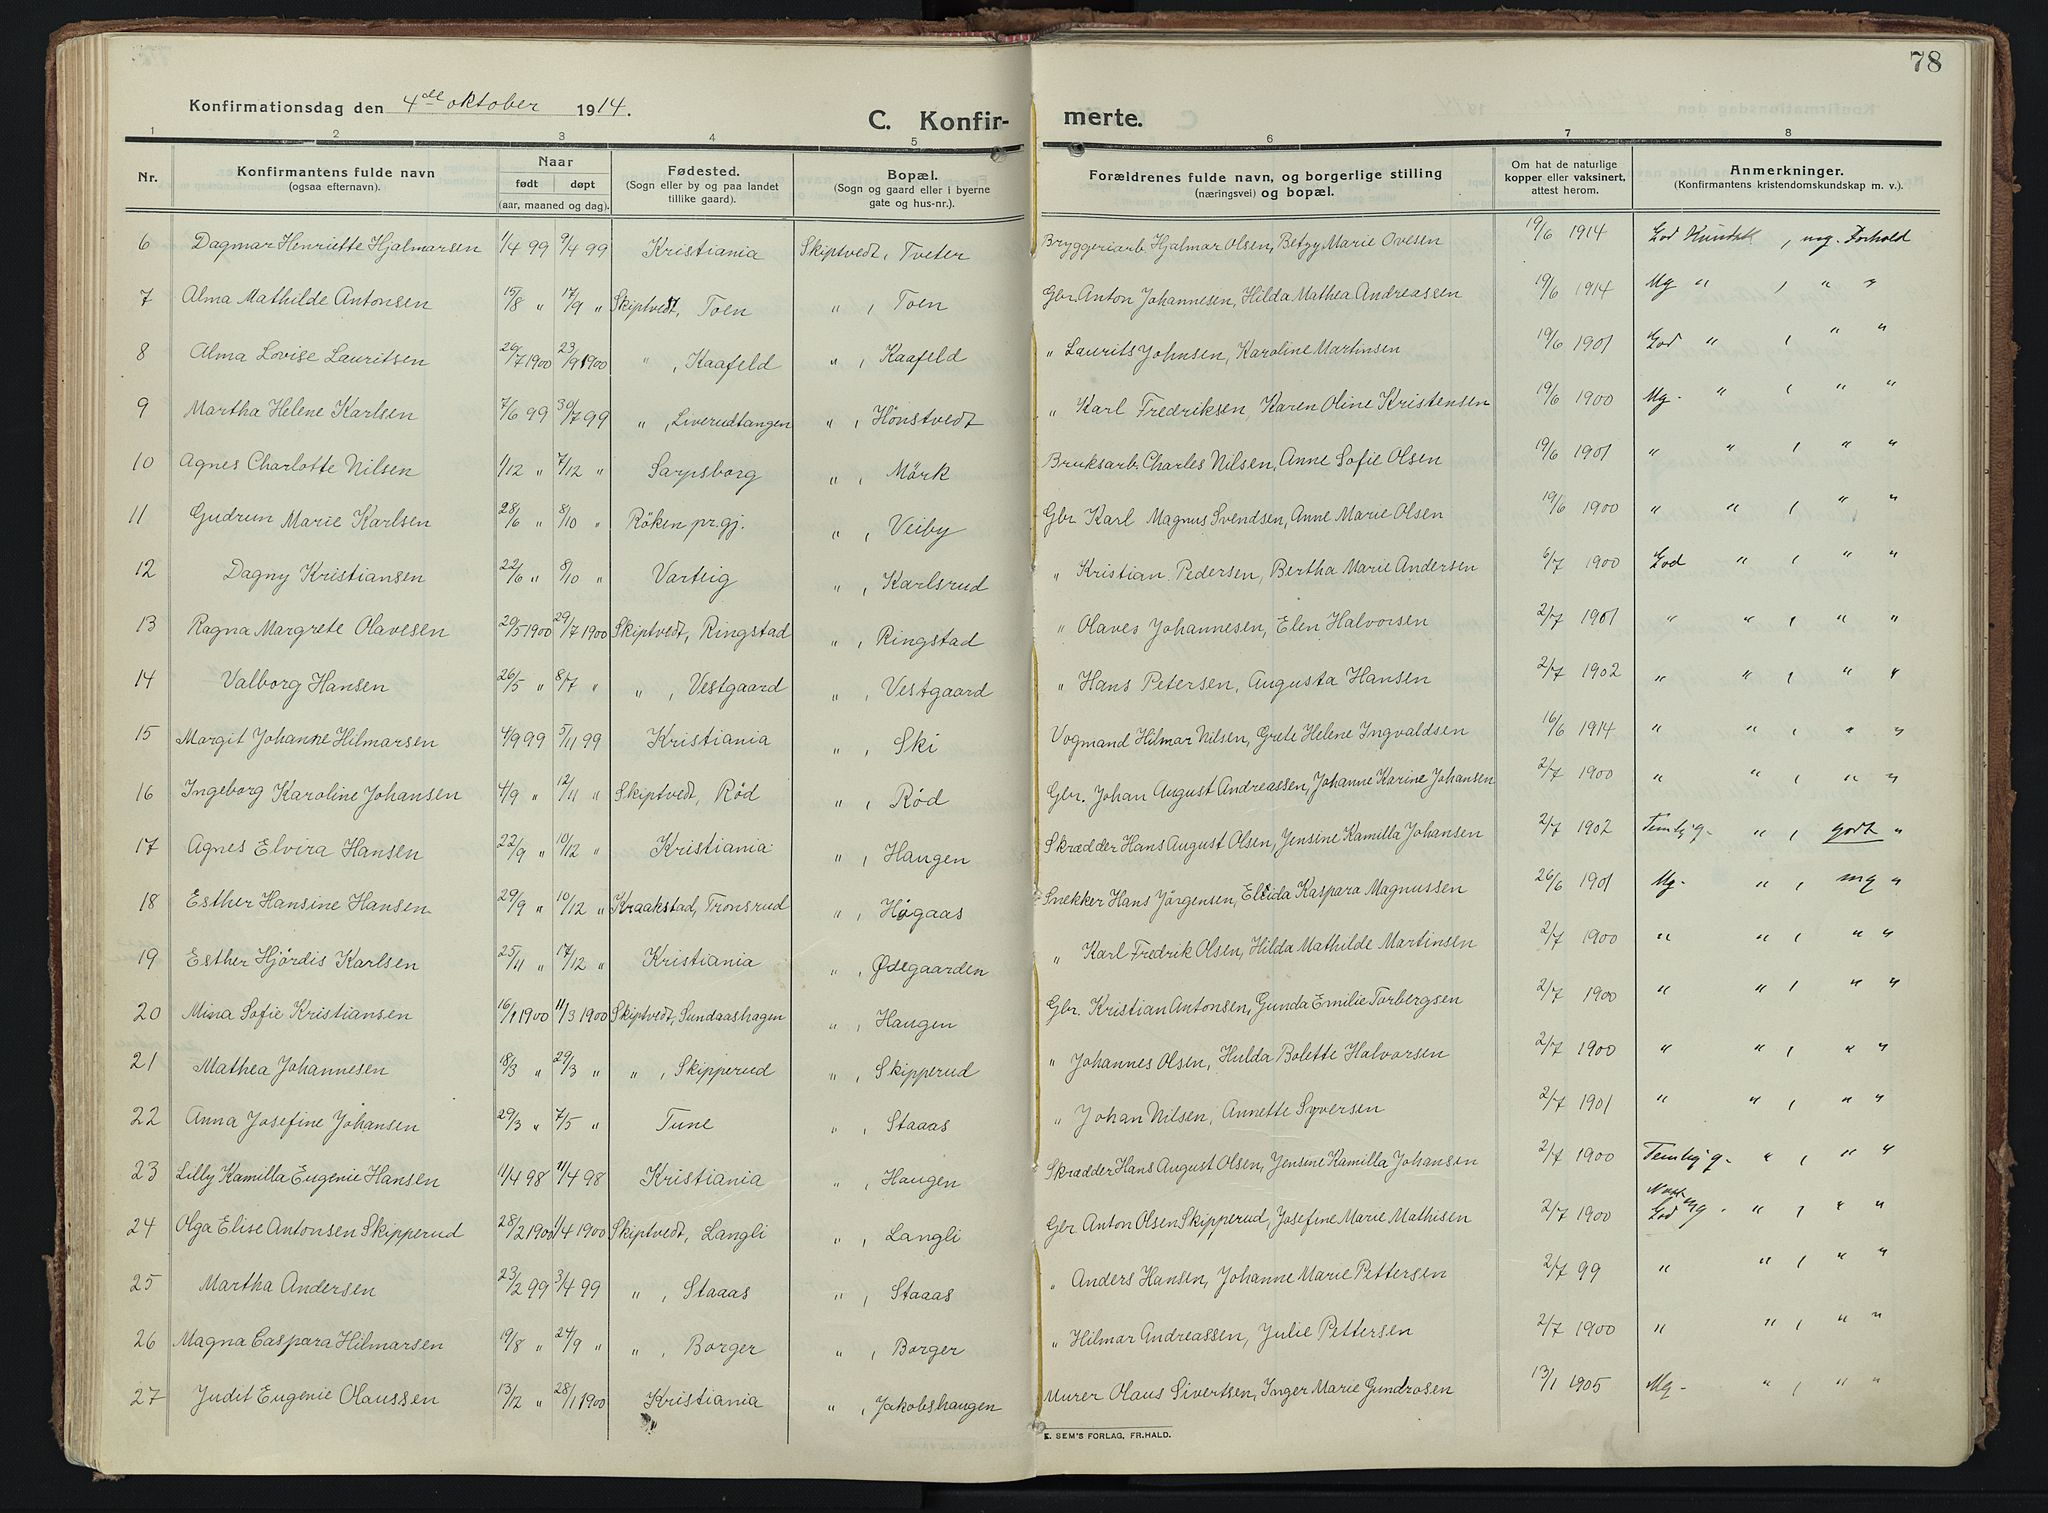 78
Konfirmationsdag den 4de oktober 1914.
C. Konfirmerte.
1 2 3 4 5 6 7 8
Nr. Konfirmantens fulde navn (ogsaa efternavn). Naar født døpt (aar, maaned og dag). Fødested. (Sogn eller by og paa landet tillike gaard). Bopæl. (Sogn og gaard eller i byerne gate og hus-nr.). Forældrenes fulde navn, og borgerlige stilling (næringsvei) og bopæl. Om hat de naturlige kopper eller vaksinert, attest herom. Anmerkninger. (Konfirmantens kristendomskundskap m. v.).
6 Dagmar Henriette Hjalmarsen 1/4 99 9/4 99 Kristiania Skiptvedt, Tveter Bryggeriarb. Hjalmar Olsen, Betzy Marie Ovesen 19/6 1914 God Kundsk, mg. Forhold
7 Alma Mathilde Antonsen 15/8 " 17/9 " Skiptvedt, Toen " , Toen Gbr Anton Johannesen, Hilda Mathea Andreassen 19/6 1914 Mg " , " "
8 Alma Lovise Lauritsen 26/7 1900 23/9 1900 " , Kaafeld " , Kaafeld " Laurits Johnsen, Karoline Martinsen 19/6 1901 God " , " "
9 Martha Helene Karlsen 7/6 99 30/7 99 " , Liverudtangen " , Hönstvedt " Karl Fredriksen, Karen Oline Kristensen 19/6 1900 Mg- " , " "
10 Agnes Charlotte Nilsen 1/12 " 7/12 " Sarpsborg " , Mørk Bruksarb. Charles Nilsen, Anne Sofie Olsen 19/6 1901 " " , " "
11 Gudrun Marie Karlsen 28/6 " 8/10 " Röken pr.gj. " , Veiby Gbr Karl Magnus Svendsen, Anne Marie Olsen 19/6 1900 " " , " "
12 Dagny Kristiansen 22/6 " 8/10 " Varteig " , Karlsrud " Kristian Pedersen, Bertha Marie Andersen 6/7 1900 God " , " "
13 Ragna Margrete Olavesen 20/5 1900 29/7 1900 Skiptvedt, Ringstad " , Ringstad " Olaves Johannesen, Elen Halvorsen 2/7 1901 " " , " "
14 Valborg Hansen 26/5 " 8/7 " " , Vestgaard " , Vestgaard " Hans Petersen, Augusta Hansen 2/7 1902 " " , " "
15 Margit Johanne Hilmarsen 4/9 99 5/11 99 Kristiania " , Ski Vogmand Hilmar Nilsen, Grete Helene Ingvaldsen 16/6 1914 " " , " "
16 Ingeborg Karoline Johansen 4/9 " 12/11 " Skiptvedt, Rød " , Rød Gbr. Johan August Andreassen, Johanne Karine Johansen 2/7 1900 " " , " "
17 Agnes Elvira Hansen 22/9 " 10/12 " Kristiania " , Haugen Skrædder Hans August Olsen, Jensine Kamilla Johansen 2/7 1902 Temlig g- " , godt "
18 Esther Hansine Hansen 29/9 " 10/12 " Kraakstad, Tronsrud " , Høgaas Snekker Hans Jörgensen, Elida Kaspara Magnussen 26/6 1901 Mg- " , mg "
19 Esther Hjördis Karlsen 25/11 " 17/12 " Kristiania " , Ødegaarden " Karl Fredrik Olsen, Hilda Mathilde Martinsen 2/7 1900 " " , " "
20 Mina Sofie Kristiansen 16/1 1900 11/3 1900 Skiptvedt, Sundaashagen " , Haugen Gbr. Kristian Antonsen, Gunda Emilie Torbergsen 2/7 1900 " " , " "
21 Mathea Johannesen 18/3 " 29/3 " " , Skipperud " , Skipperud " Johannes Olsen, Hulda Bolette Halvorsen 2/7 1900 " " , " "
22 Anna Josefine Johansen 29/3 " 7/5 " Tune " , Staaas " Johan Nilsen, Annette Syversen 2/7 1901 " " , " "
23 Lilly Kamilla Eugenie Hansen 11/4 98 11/4 98 Kristiania " , Haugen Skrædder Hans August Olsen, Jensine Kamilla Johansen 2/7 1900 Temlig g- " , " "
24 Olga Elise Antonsen Skipperud 28/2 1900 1/4 1900 Skiptvedt, Langli " , Langli Gbr Anton Olsen Skipperud, Josefine Marie Mathisen 2/7 1900 God mg - " , " "
25 Martha Andersen 23/2 99 3/4 99 " , Staaas " , Staaas " Anders Hansen, Johanne Marie Pettersen 2/7 99 " " , " "
26 Magna Caspara Hilmarsen 19/8 " 24/9 " " , Borger " , Borger " Hilmar Andreassen, Julie Pettersen 2/7 1900 " " , " "
27 Judit Eugenie Olaussen 13/12 " 28/1 1900 Kristiania " , Jakobshaugen Murer Olaus Sivertsen, Inger Marie Gundrosen 13/1 1905 Mg- " , " "
E. SEM'S FORLAG, FR.HALD.